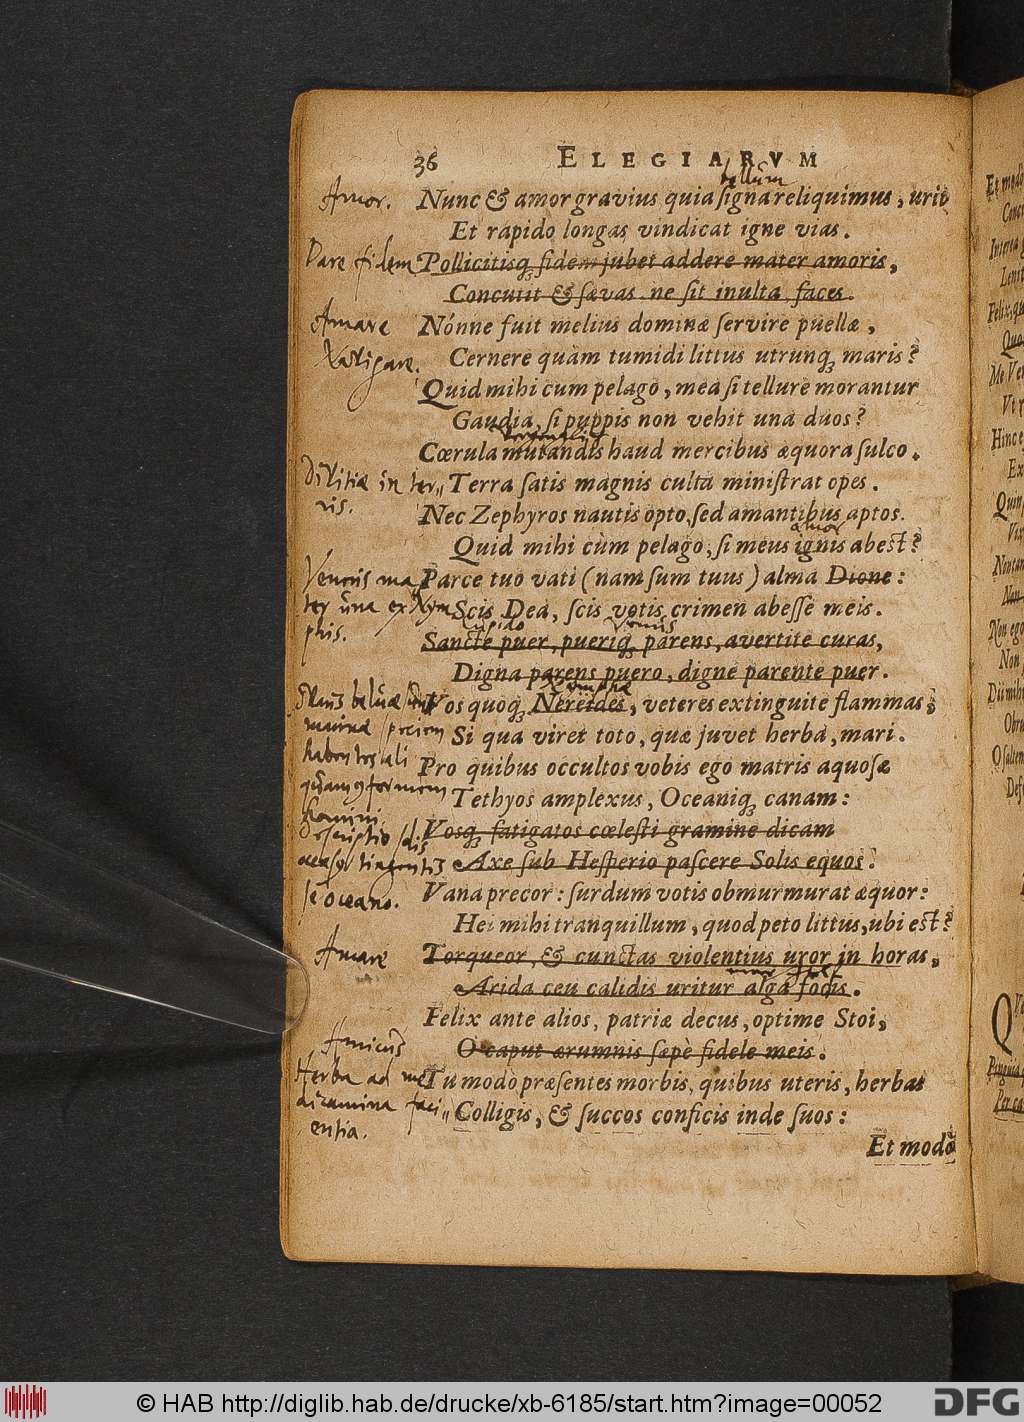 36 ELEGIARVM
bellum
Amor. Nunc & amor gravius quia signa reliquimus, urit
Et rapido longas vindicat igne vias.
Dare fidem Pollicitisq; fidem jubet addere mater amoris,
Concutit & sævas ne sit inulta faces.
Amare Nónne fuit melius dominæ servire puellæ,
Cernere quàm tumidi littus utrunq; maris?
Quid mihi cum pelago, mea si tellure morantur
Gaudia, si puppis non vehit una duos?
Cœrula mutandis haud mercibus æquora sulco.
Divitiæ in ter„ Terra satis magnis culta ministrat opes.
ris. Nec Zephyros nautis opto, sed amantibus aptos.
amor
Quid mihi cùm pelago, si meus ignis abest?
Parce tuo vati (nam sum tuus) alma Dione:
Scis Dea, scis votis crimen abesse meis.
phis. Cupido Venus
Sancte puer, pueriq; parens, avertite curas,
Digna parens puero, digne parente puer.
Nympha
Vos quoq; Nereides, veteres extinguite flammas,
Si qua viret toto, quæ juvet herba, mari.
Pro quibus occultos vobis ego matris aquosæ
Tethyos amplexus, Oceaniq; canam:
Vosq; fatigatos cœlesti gramine dicam
Axe sub Hesperio pascere Solis equos.
Vana precor: surdum votis obmurmurat æquor:
oceano. Hei mihi tranquillum, quod peto littus, ubi est?
Amare Torqueor, & cunctas violentius uror in horas,
Arida ceu calidis uritur alga focis.
Felix ante alios, patriæ decus, optime Stoi,
Amicus O caput ærumnis sæpè fidele meis.
Herba ad me Tu modò præsentes morbis, quibus uteris, herbas
dicamina faci„ Colligis, & succos conficis inde suos:
entia.
Et modò
© HAB http://diglib.hab.de/drucke/xb-6185/start.htm?image=00052
DFG